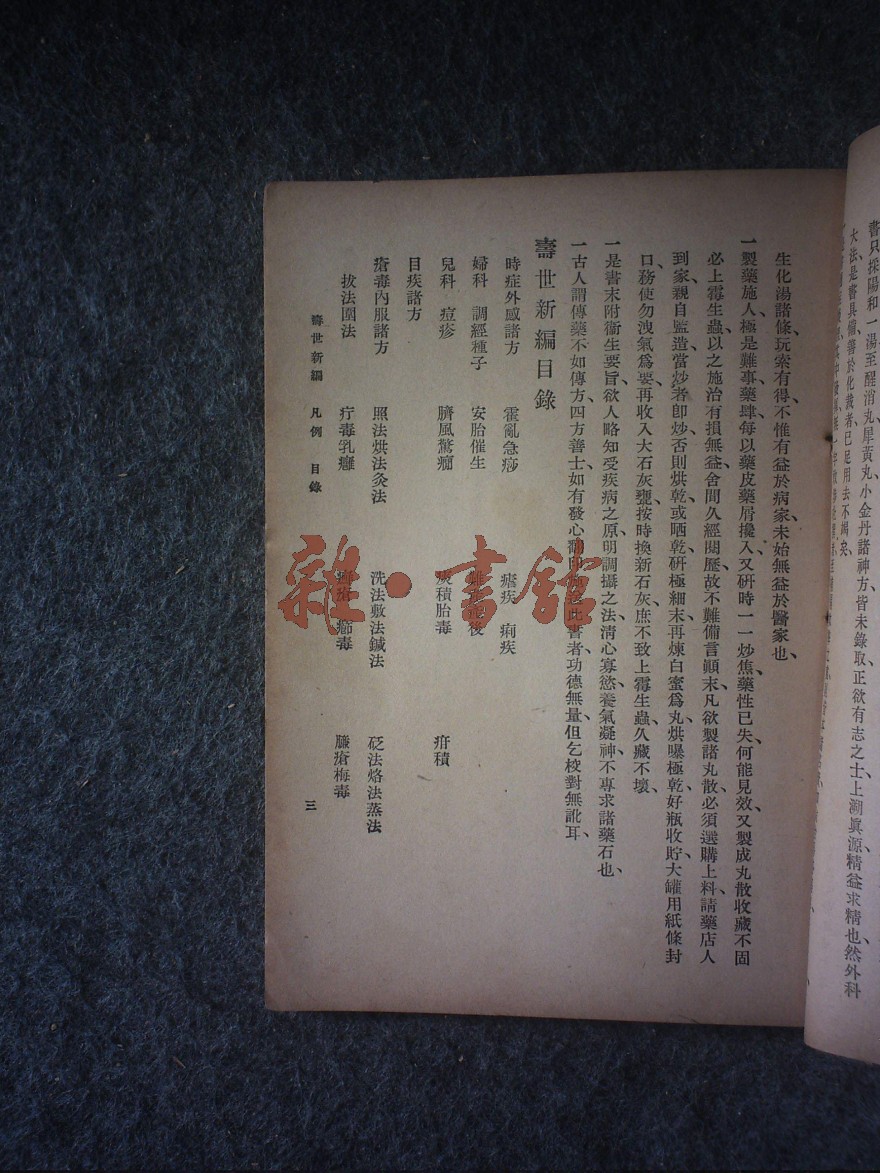 書只採陽和一湯至醒消丸犀黃丸小金丹諸神方皆未錄取正欲有志之士上溯眞源精益求精也然外科
大法、是書具備、善於化裁者、已足用去不竭矣、
生化湯諸條玩索有得、不惟有益於病家、未始無益於醫家也、
一製藥施人、極是難事、藥肆每以藥皮藥屑攙入、又研時一一炒焦、藥性已失、何能見效、又製成丸散、收藏不固
必上霉生蟲、以之施治、有損無益、舍間久經閱歷、故不難備言顚末、凡欲製諸丸散、必須選購上料、請藥店人
到家、親自監造、當炒者卽炒、否則烘乾或晒乾、研極細末、再煉白蜜爲丸、烘曝極乾、好瓶收貯、大罐用紙條封
口、務使勿洩氣爲要、再收入大石灰甕、按時換新石灰、庶不致上霉生蟲、久藏不壞、
一是書末附衞生要旨、欲人略知受疾病之原、明調攝之法、淸心寡慾、養氣凝神、不專求諸藥石也、
一古人謂傳藥不如傳方、四方善士、如有發心翻印施送此書者、功德無量、但乞校對無訛耳、
壽世新編目錄
時症外感諸方 霍亂急痧 瘧疾 痢疾
婦科 調經種子 安胎催生 後
兒科 痘疹 臍風驚癇 積胎毒 疳積
目疾諸方
瘡毒內服諸方 照法烘法灸法 洗法敷法鍼法 砭法烙法蒸法
拔法圍法 疔毒乳癰 毒 臁瘡梅毒
壽世新編 凡例 目錄 三
雜·書館